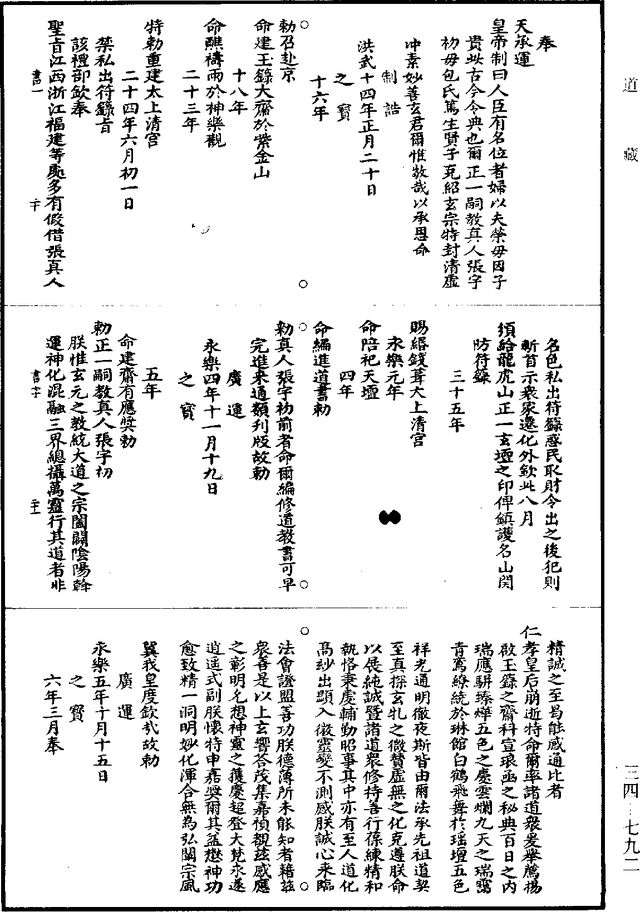 道藏
奉
天承運
皇帝制曰人臣有名位者婦以夫榮毋因子
貴此古今令典也爾正一嗣教真人張宇
初毋包氏篤生賢子克紹玄宗特封清虛
冲素妙善玄君爾惟敬哉以承恩命
制誥
洪武十四年正月二十日
之寳
十六年
勑召赴京
命建玉籙大齋於紫金山
十八年
命醮禱雨於神樂觀
二十三年
特勑重建太上清宫
二十四年六月初一日
禁私出符籙旨
該禮部欽奉
聖旨江西浙江福建等處多有假借張真人
書一
二十
名色私出符籙惑民取財令出之後犯則
斬首示衆家遷化外欽此八月
須給龍虎山正一玄壇之印俾鎮護名山関
防符籙
三十五年
賜緡錢葺大上清宫
永樂元年
命陪祀天壇
四年
命編進道書勑
勑真人張宇初前者命爾編修道教書可早
完進来通類刋板故勑
廣運
永樂四年十一月十九日
之寳
五年
命建齋有應奬勑
勑正一嗣教真人張宇初
朕惟玄元之教統大道之宗闔闢隂陽斡
運神化混融三界總攝萬靈行其道者非
書字
二十一
精誠之至曷能感通比者
仁孝皇后崩逝特命爾率諸道衆爰舉薦揚
啟玉籙之齋科宣琅函之秘典百日之内
瑞應駢臻燁五色之慶雲爛九天之瑞靄
青鸞繚繞於琳館白鶴飛舞於瑶壇五色
祥光通明徹夜斯皆由爾法承先祖道契
至真探玄牝之微賛虛無之化克遵朕命
以展純誠暨諸道衆修持善行葆練精和
執恪秉虔輔勤昭事其中亦有至人道化
高紗出顯入微靈變不測感朕誠心来臨
法會證盟善功朕德薄所未能知者籍兹
衆善是以上玄響荅茂集嘉禎覩兹感應
之彰明乆想神靈之擭慶超登大梵永遂
逍遥式副朕懷特申嘉奬爾其益懋神功
愈致精一洞明妙化渾合無為弘闡宗風
翼我皇度欽哉故勑
廣運
永樂五年十月十五日
之寳
六年三月奉
三四—七九二